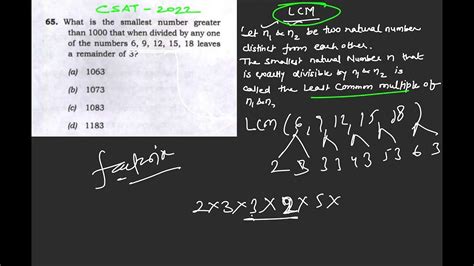 CSAT - 2022
65. What is the smallest number greater
than 1000 that when divided by any one
of the numbers 6, 9, 12, 15, 18 leaves
a remainder of 3?
(a) 1063
(b) 1073
(c) 1083
(d) 1183
LCM
Let n₁ & n₂ be two natural number
distinct from each other.
The smallest natural Number n that
is exactly divisible by n₁ & n₂ is
called the Least Common multiple of
n₁ & n₂
LCM (6, 9, 12, 15, 18)
2 3 3 3 4 3 5 3 6 3
2 × 3 × 3 × 2 × 5 ×